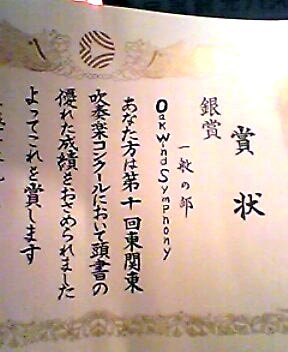 賞状
銀賞
一般の部
Oak Wind Symphony
あなた方は第十回東関東
吹奏楽コンクールにおいて頭書の
優れた成績をおさめられました
よってこれを賞します